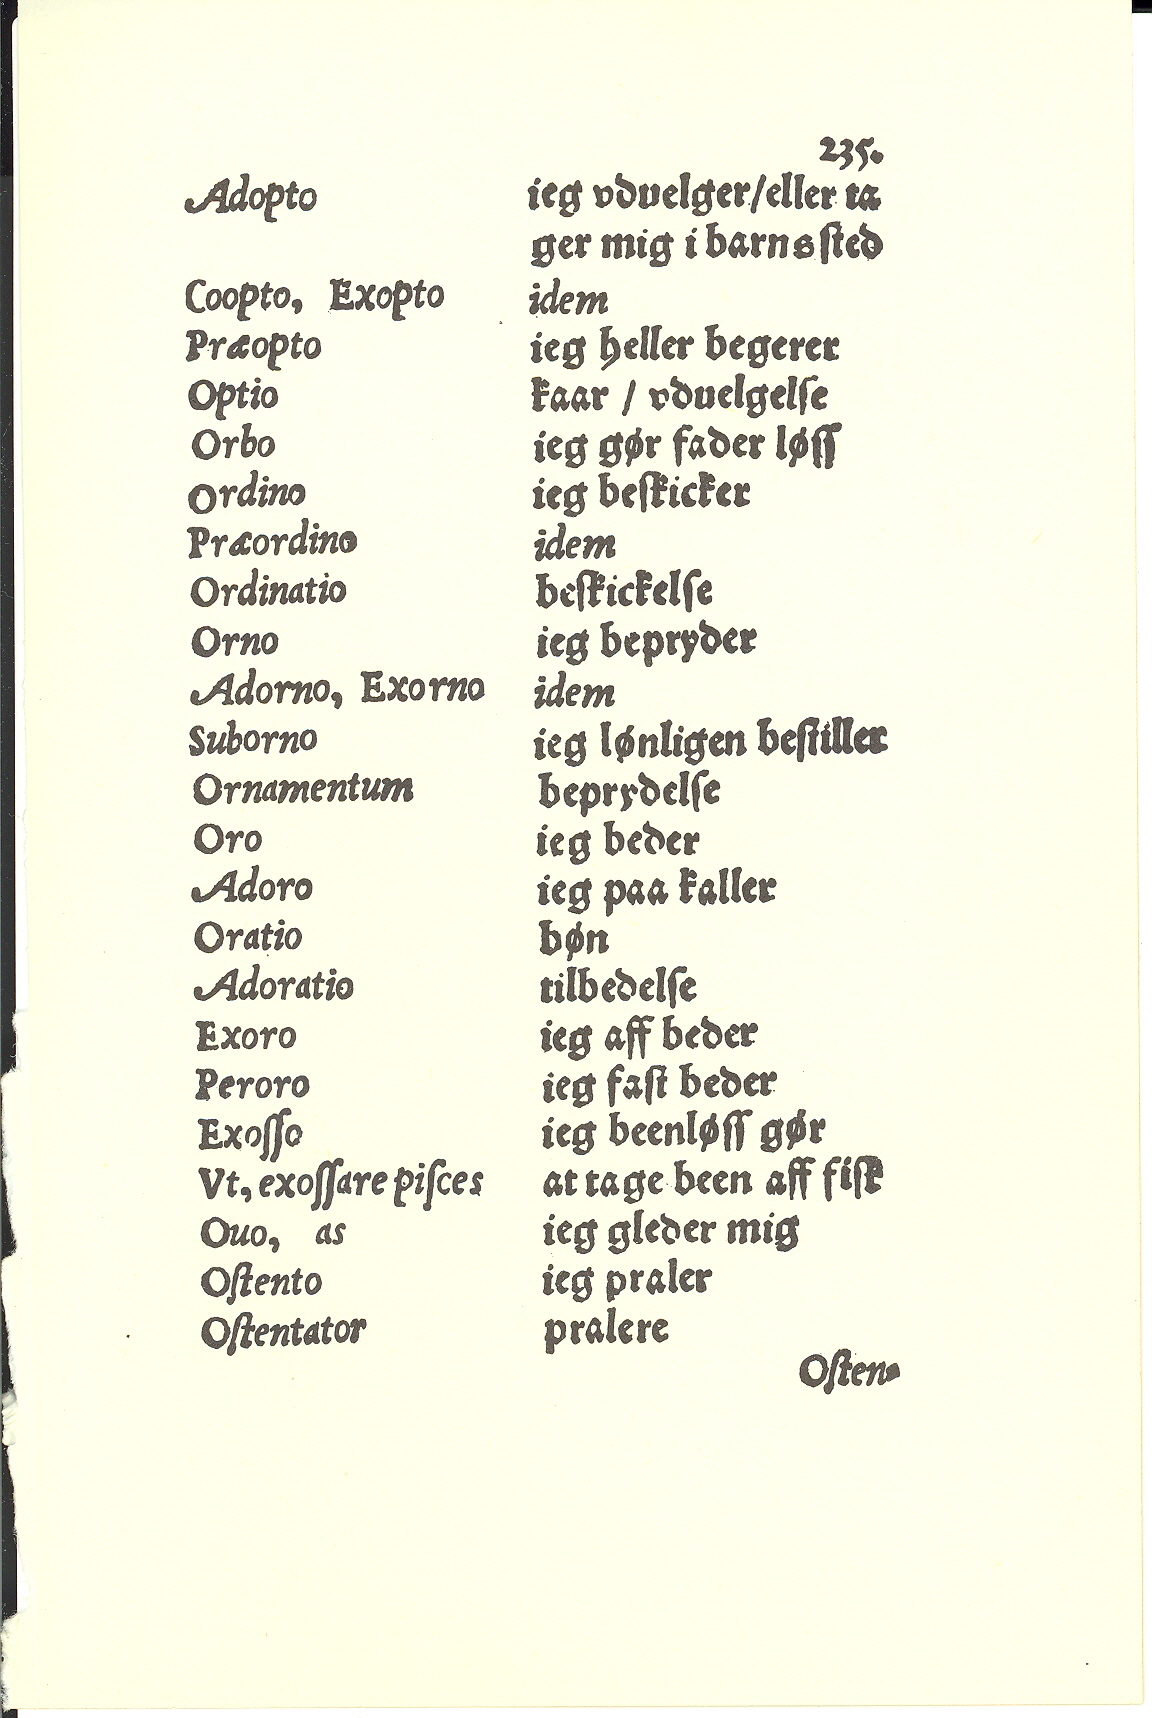 235.
Adopto ieg vduelger/eller ta
ger mig i barns sted
Coopto, Exopto idem
Præopto ieg heller begerer
Optio kaar / vduelgelſe
Orbo ieg gør fader løſſ
Ordino ieg beſkicker
Præordino idem
Ordinatio beſkickelſe
Orno ieg bepryder
Adorno, Exorno idem
Suborno ieg lønligen beſtiller
Ornamentum beprydelſe
Oro ieg beder
Adoro ieg paa kaller
Oratio bøn
Adoratio tilbedelſe
Exoro ieg aff beder
Peroro ieg faſt beder
Exoſſo ieg beenløſſ gør
Vt, exoſſare piſces at tage been aff fiſk
Ouo, as ieg gleder mig
Oſtento ieg praler
Oſtentator pralere
Oſten-